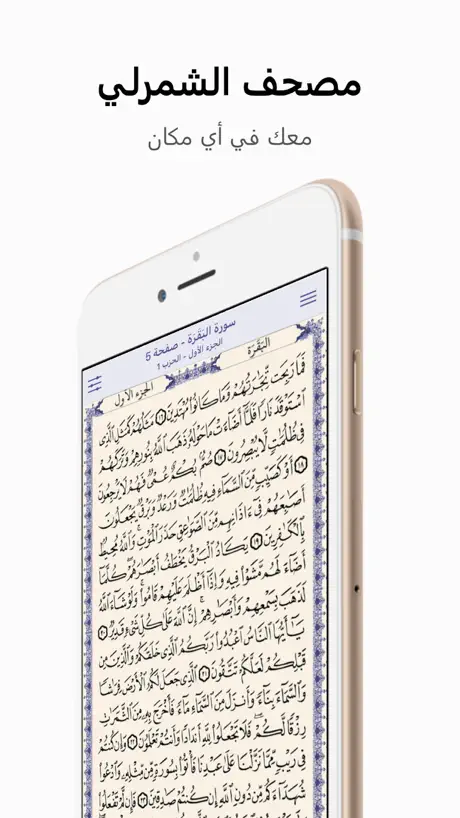 مصحف الشمرلي
معك في أي مكان
سورة البَقَرَة - صفحة 5
الجزء الأول - الحزب 1
البَقَرَة
الجزء الأول
فَمَا رَبِحَت تِّجَٰرَتُهُمْ وَمَا كَانُوا۟ مُهْتَدِينَ ١٦ مَثَلُهُمْ كَمَثَلِ ٱلَّذِى
ٱسْتَوْقَدَ نَارًا فَلَمَّآ أَضَآءَتْ مَا حَوْلَهُۥ ذَهَبَ ٱللَّهُ بِنُورِهِمْ وَتَرَكَهُمْ
فِى ظُلُمَٰتٍ لَّا يُبْصِرُونَ ١٧ صُمٌّۢ بُكْمٌ عُمْىٌ فَهُمْ لَا يَرْجِعُونَ
١٨ أَوْ كَصَيِّبٍ مِّنَ ٱلسَّمَآءِ فِيهِ ظُلُمَٰتٌ وَرَعْدٌ وَبَرْقٌ يَجْعَلُونَ
أَصَٰبِعَهُمْ فِىٓ ءَاذَانِهِم مِّنَ ٱلصَّوَٰعِقِ حَذَرَ ٱلْمَوْتِ ۚ وَٱللَّهُ مُحِيطٌۢ
بِٱلْكَٰفِرِينَ ١٩ يَكَادُ ٱلْبَرْقُ يَخْطَفُ أَبْصَٰرَهُمْ ۖ كُلَّمَآ
أَضَآءَ لَهُم مَّشَوْا۟ فِيهِ وَإِذَآ أَظْلَمَ عَلَيْهِمْ قَامُوا۟ ۚ وَلَوْ شَآءَ ٱللَّهُ
لَذَهَبَ بِسَمْعِهِمْ وَأَبْصَٰرِهِمْ ۚ إِنَّ ٱللَّهَ عَلَىٰ كُلِّ شَىْءٍ قَدِيرٌ ٢٠
يَٰٓأَيُّهَا ٱلنَّاسُ ٱعْبُدُوا۟ رَبَّكُمُ ٱلَّذِى خَلَقَكُمْ وَٱلَّذِينَ مِن
قَبْلِكُمْ لَعَلَّكُمْ تَتَّقُونَ ٢١ ٱلَّذِى جَعَلَ لَكُمُ ٱلْأَرْضَ فِرَٰشًا
وَٱلسَّمَآءَ بِنَآءً وَأَنزَلَ مِنَ ٱلسَّمَآءِ مَآءً فَأَخْرَجَ بِهِۦ مِنَ ٱلثَّمَرَٰتِ
رِزْقًا لَّكُمْ ۖ فَلَا تَجْعَلُوا۟ لِلَّهِ أَندَادًا وَأَنتُمْ تَعْلَمُونَ ٢٢ وَإِن كُنتُمْ
فِى رَيْبٍ مِّمَّا نَزَّلْنَا عَلَىٰ عَبْدِنَا فَأْتُوا۟ بِسُورَةٍ مِّن مِّثْلِهِۦ وَٱدْعُوا۟
شُهَدَآءَكُم مِّن دُونِ ٱللَّهِ إِن كُنتُمْ صَٰدِقِينَ ٢٣ فَإِن لَّمْ تَفْعَلُوا۟